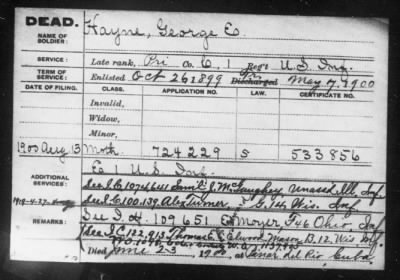 DEAD.
NAME OF SOLDIER: Hayne, George E.
SERVICE: Late rank, Pri Co. C, 1 Reg't U.S. Inf.
TERM OF SERVICE: Enlisted Oct 26 1899 Discharged May 7, 1900
DATE OF FILING. CLASS. APPLICATION NO. LAW. CERTIFICATE NO.
Invalid,
Widow,
Minor,
1900 Aug 13 Moth. 724229 S 533856
ADDITIONAL SERVICES: E U.S. Inf.
See I.C. Sam'l J. McGaughey Unassd Ill. Inf.
See I.C. 100.139 Alex Turner, G. 14 Wis. Inf.
REMARKS: See I.H. 109651 Moyer F 46 Ohio Inf
See I.C. 122.913 Thomas Elwood Mason B. 12. Wis. Inf.
Died June 23 1900 at Pinar del Rio Cuba